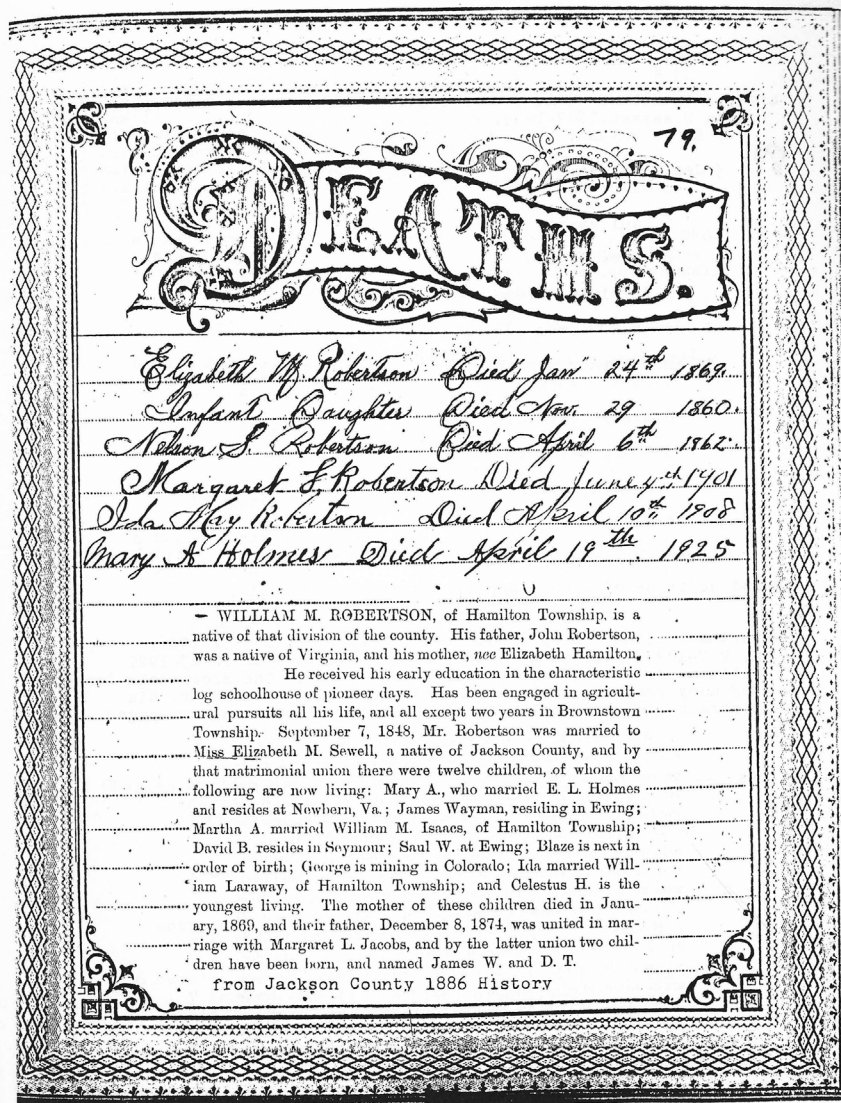 79.
DEATHS.
Elizabeth M Robertson Died Jan 24th 1869.
Infant Daughter Died Nov. 29 1860.
Nelson S. Robertson Died April 6th 1862.
Margaret L. Robertson Died June 4th 1901
Ida May Robertson Died April 10th 1908
Mary A Holmes Died April 19th 1925
— WILLIAM M. ROBERTSON, of Hamilton Township, is a
native of that division of the county. His father, John Robertson,
was a native of Virginia, and his mother, nee Elizabeth Hamilton.
He received his early education in the characteristic
log schoolhouse of pioneer days. Has been engaged in agricult-
ural pursuits all his life, and all except two years in Brownstown
Township. September 7, 1848, Mr. Robertson was married to
Miss Elizabeth M. Sewell, a native of Jackson County, and by
that matrimonial union there were twelve children, of whom the
following are now living: Mary A., who married E. L. Holmes
and resides at Newbern, Va.; James Wayman, residing in Ewing;
Martha A. married William M. Isaacs, of Hamilton Township;
David B. resides in Seymour; Saul W. at Ewing; Blaze is next in
order of birth; George is mining in Colorado; Ida married Will-
iam Laraway, of Hamilton Township; and Celestus H. is the
youngest living. The mother of these children died in Janu-
ary, 1869, and their father, December 8, 1874, was united in mar-
riage with Margaret L. Jacobs, and by the latter union two chil-
dren have been born, and named James W. and D. T.
from Jackson County 1886 History